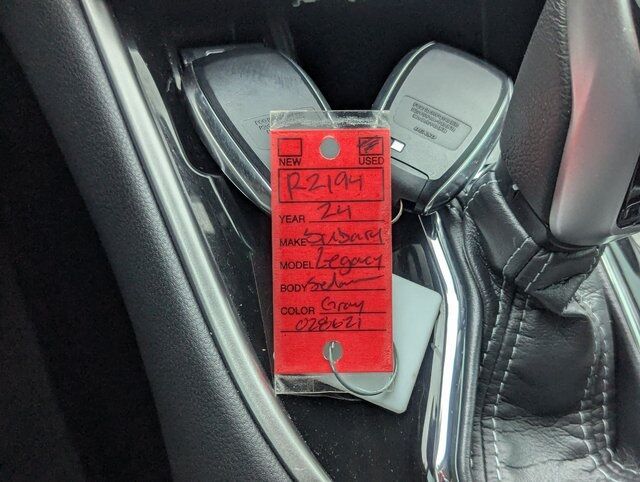 NEW USED
R2194
YEAR 24
MAKE Subaru
MODEL Legacy
BODY Sedan
COLOR Gray
028621